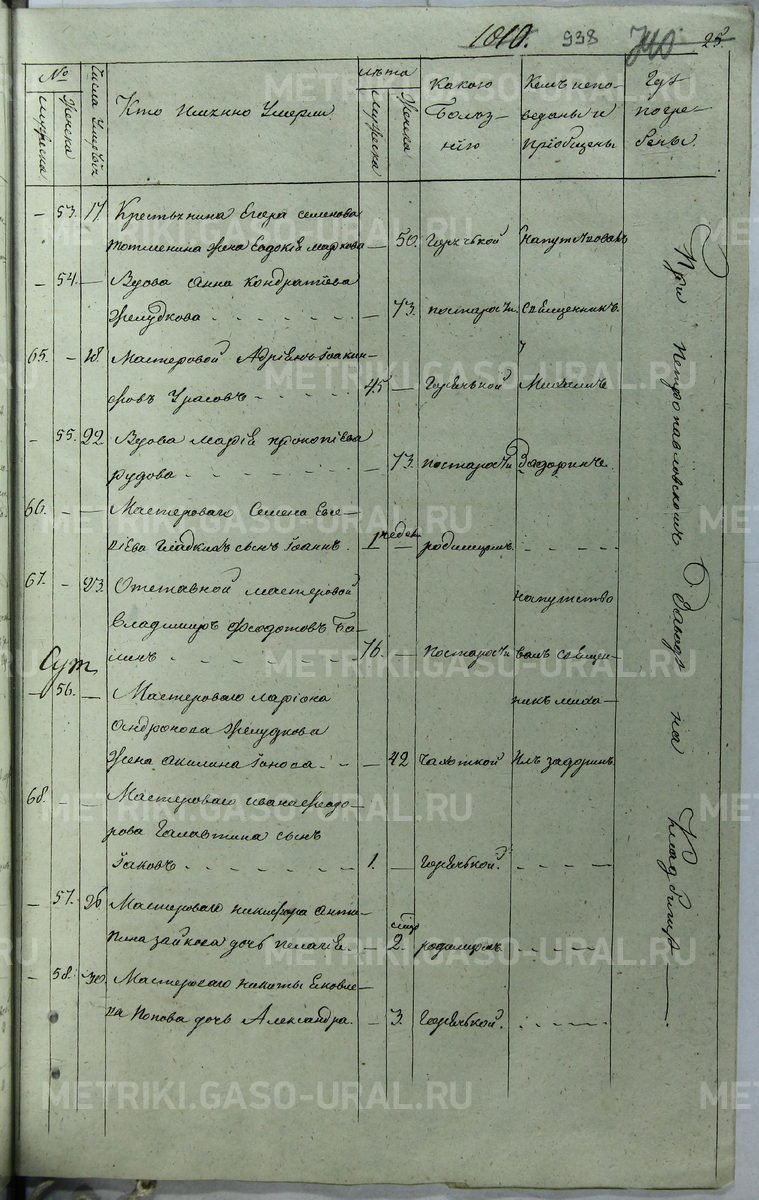 1010. 938 740 25.
№
Мужеска
Женска
Числа Умершихъ
Кто Именно Умерли
лѣта
Мужеска
Женска
Какою
Болѣз-
нію
Кемъ испо-
веданы и
пріобщены
Гдѣ
погре-
бены.
— 53. 17 Крестьянина Егора Семенова
жена Евдокія Маркова — 50. Горячькой Напутствованъ
— 54. — Вдова Анна Кондратіева
Желудкова — 73. постарости. Священник.
65. — 18. Мастеровой Адріянъ Іоаки-
овъ Урасовъ 45 — Горячькой Михаилъ
— 55. 22 Вдова Марія Прокопіева
Рудова — 73. постарости Задоринъ.
66. — — Мастероваго Семена Евсе-
віева Гладкихъ сынъ Іоаннъ. 1 недел — родимцомъ.
67. — 23. Отставной мастеровой напутство
Владимиръ Феодотовъ Ба-
линъ 76. — постарости валъ Священ-
— 56. — Мастероваго Ларіона никъ Миха-
Андронова Желудкова
жена Акилина Іанова — 42 Чахоткой илъ Задоринъ.
68. — — Мастероваго Ивана Феодо-
рова Галавтина сынъ
Іаковъ 1. — Горячькой.
— 57. 26 Мастероваго Никифора Анти-
пина Зайкова дочь Пелагія. — 2. родимцомъ
— 58. 30. Мастероваго Никиты Яковле-
ва Попова дочь Александра. — 3. Горячькой.
При Петропавловскомъ Заводѣ на Кладбищѣ
METRIKI.GASO-URAL.RU